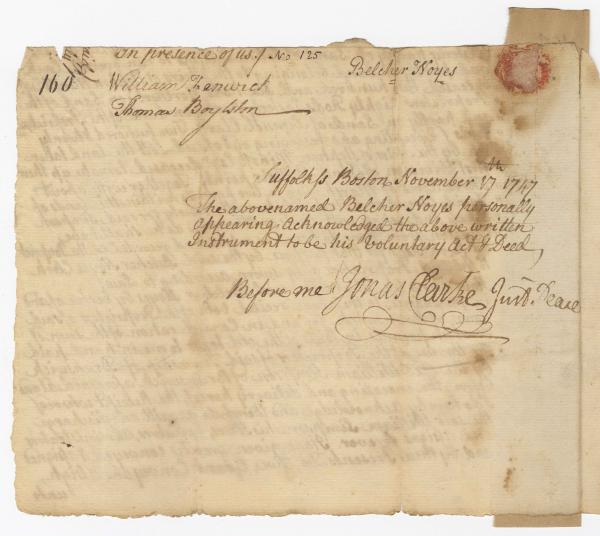 in presence of us./ No 125
160
William Fenwick
Belcher Noyes
Thomas Boylston
Suffolk ss Boston November 17th 1747
The abovenamed Belcher Noyes personally
appearing Acknowledged the above written
Instrument to be his Voluntary Act & Deed,
Before me Jonas Clarke Just. Peace